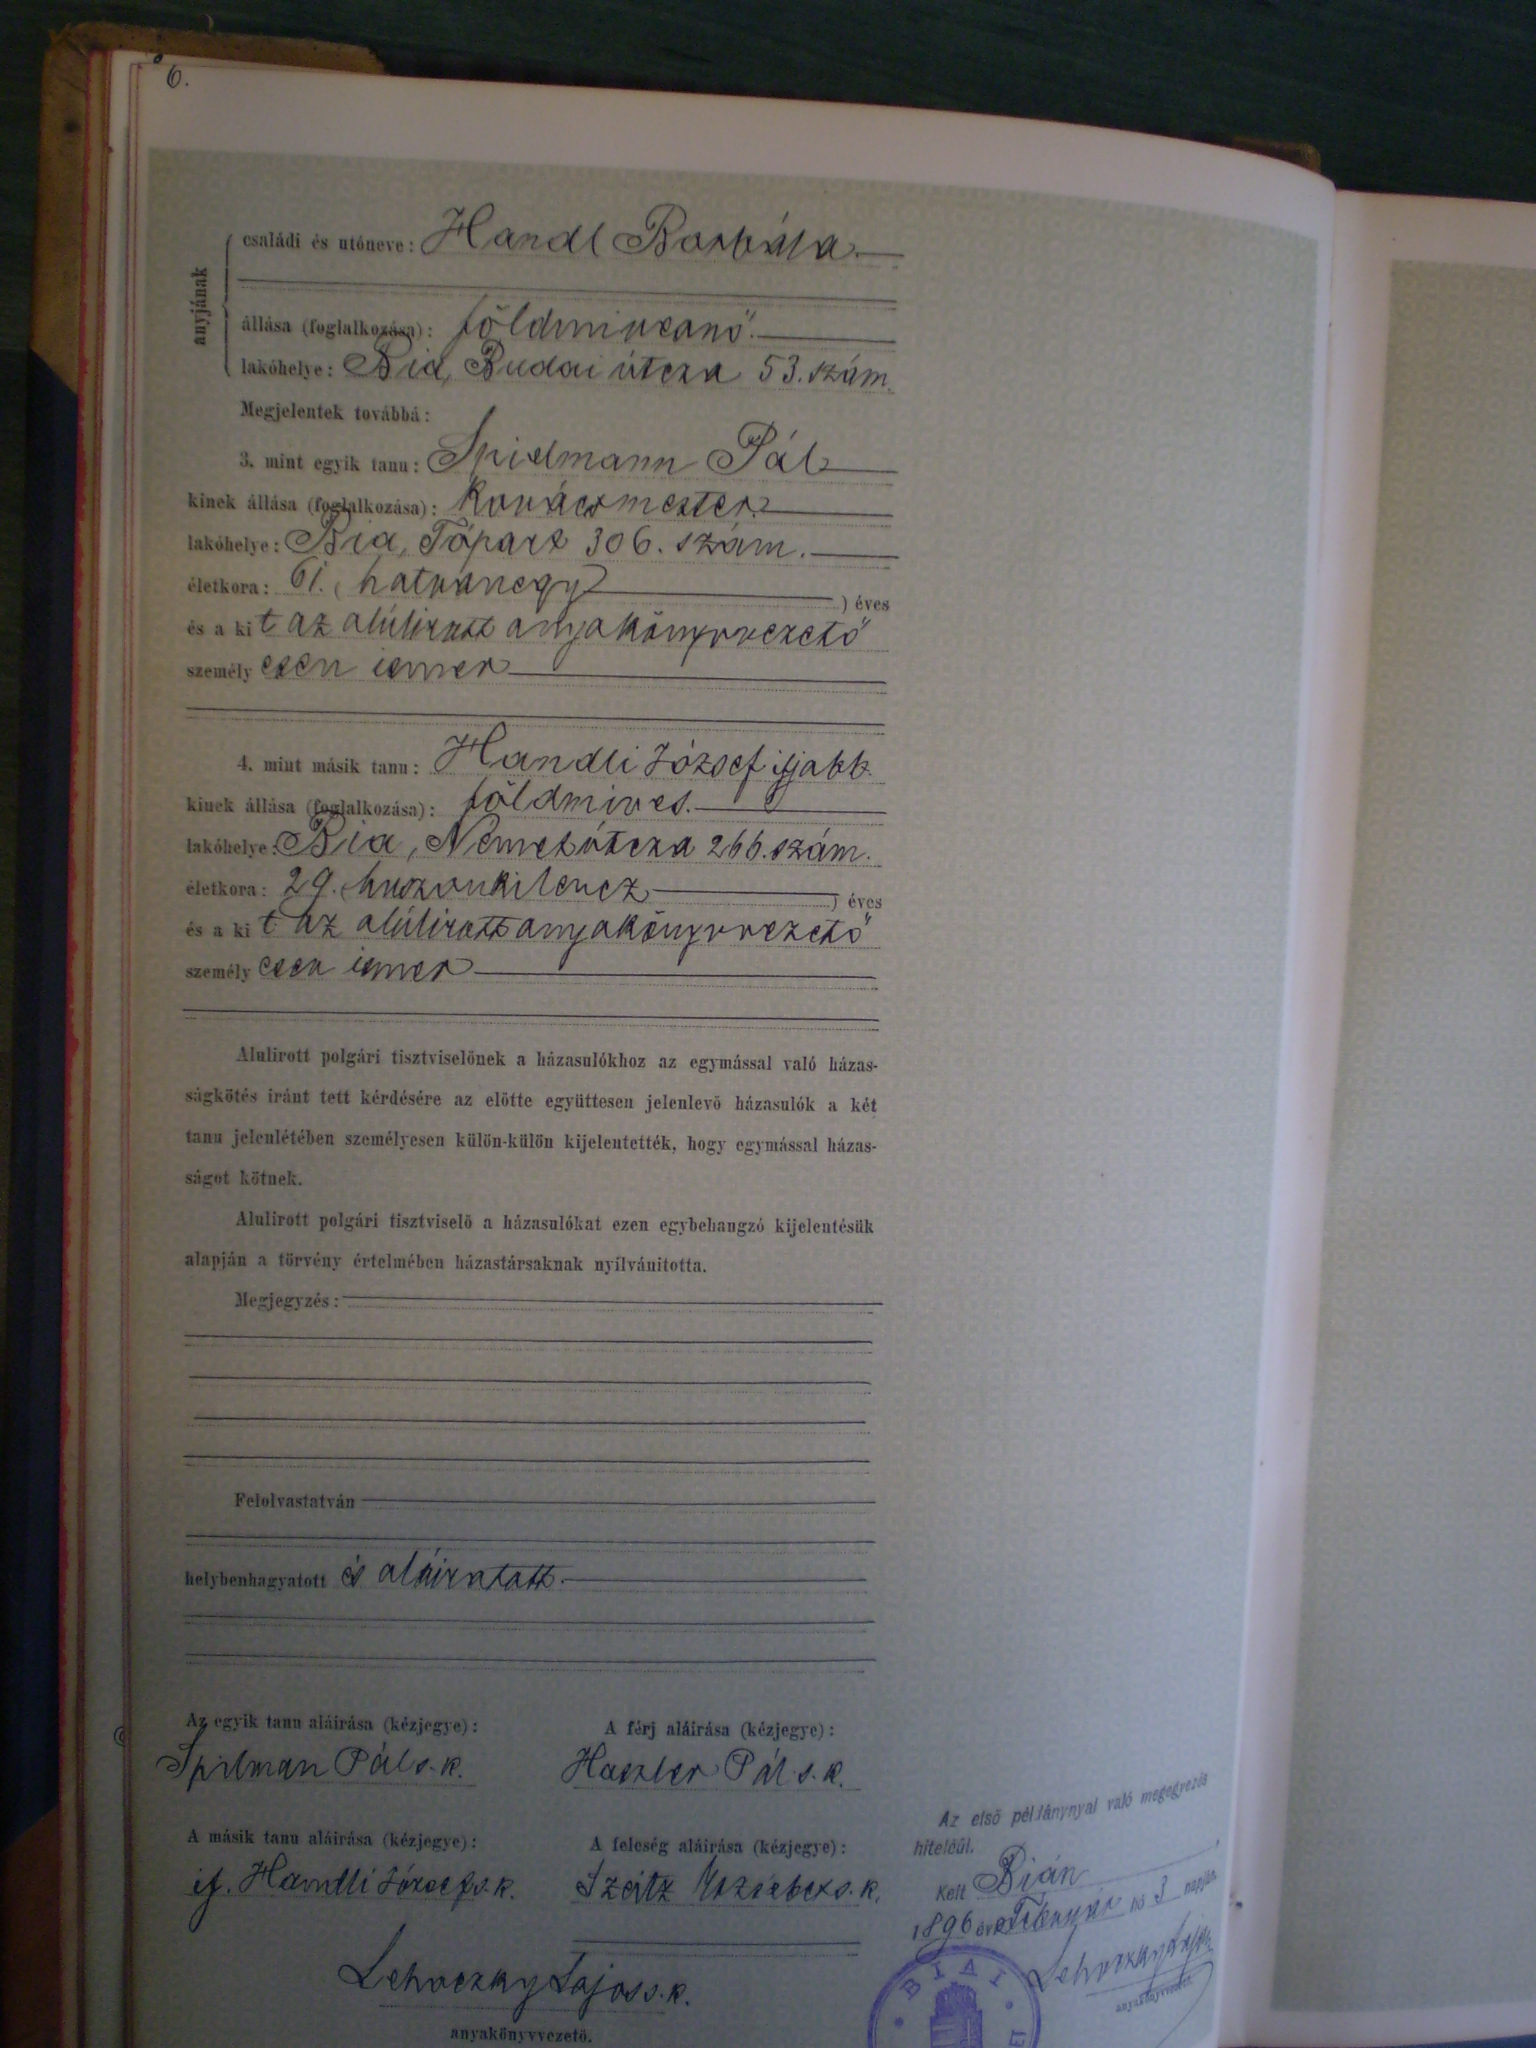 6.
anyjának
családi és utóneve: Handl Borbála
állása (foglalkozása): földmivesnő.
lakóhelye: Bia, Budai útcza 53. szám.
Megjelentek továbbá:
3. mint egyik tanu: Spielmann Pál
kinek állása (foglalkozása): kovácsmester.
lakóhelye: Bia, Tópart 306. szám.
életkora: 61. (hatvanegy) éves
és a kit az alúlirott anyakönyvvezető
személyesen ismer
4. mint másik tanu: Handli József ifjabb.
kinek állása (foglalkozása): földmives.
lakóhelye: Bia, Németútcza 266. szám.
életkora: 29. (huszonkilencz) éves
és a kit az alúlirott anyakönyvvezető
személyesen ismer
Alulirott polgári tisztviselönek a házasulókhoz az egymással való házas-
ságkötés iránt tett kérdésére az előtte együttesen jelenlevö házasulók a két
tanu jelenlétében személyesen külön-külön kijelentették, hogy egymással házas-
ságot kötnek.
Alulirott polgári tisztviselö a házasulókat ezen egybehangzó kijelentésük
alapján a törvény értelmében házastársaknak nyilvánitotta.
Megjegyzés:
Felolvastatván
helybenhagyatott és aláiratott.
Az egyik tanu aláirása (kézjegye): A férj aláirása (kézjegye):
Spilman Pál s. k. Haszler Pál s. k.
A másik tanu aláirása (kézjegye): A feleség aláirása (kézjegye):
if. Handli József s. k. Szeitz Erzsébet s. k.
Lehoczky Lajos s. k.
anyakönyvvezetö.
Az első példánynyal való megegyezés
hiteléül.
Kelt Bián
1896 évi Február hó 3 napján
Lehoczky Lajos
anyakönyvvezetö.
BIAI